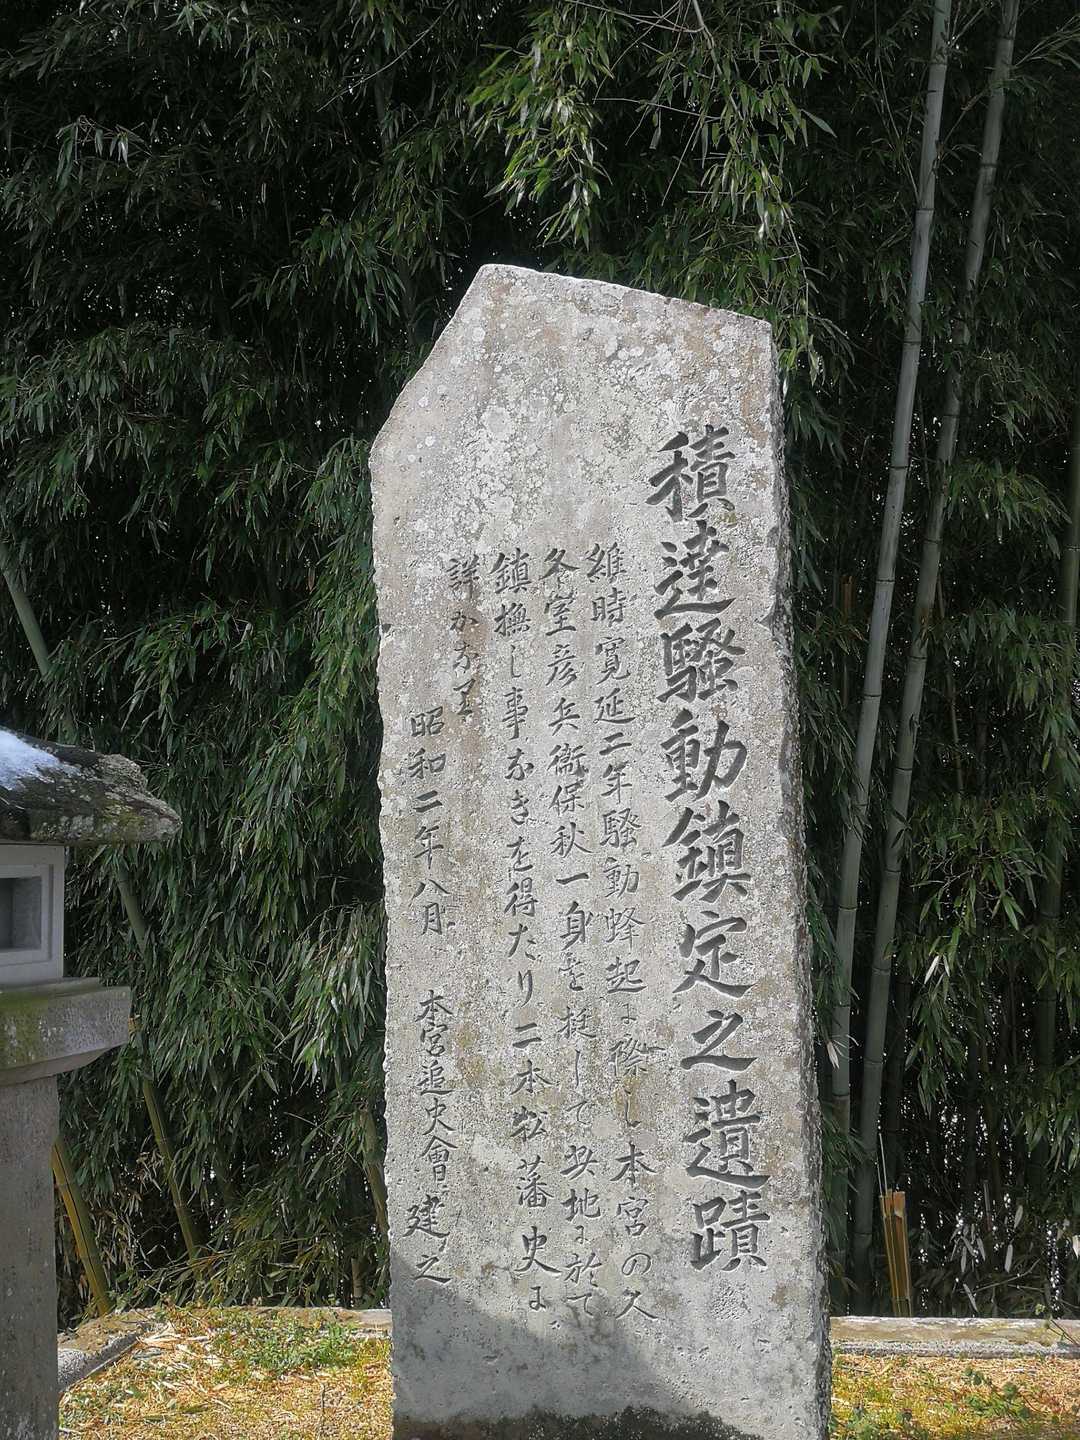 積達騒動鎮定之遺蹟
維時寛延二年騒動蜂起に際し本宮の人
冬室彦兵衛保秋一身を挺して此地に於て
鎮撫し事なきを得たり二本松藩史に
詳かなり
昭和二年八月 本宮追史會建之